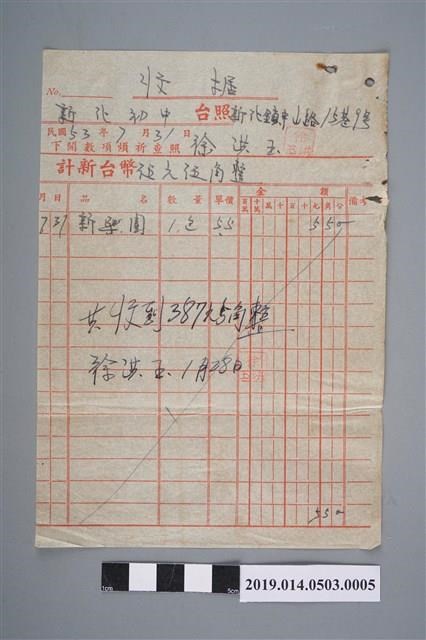 收據
No.
新化初中 台照 新化鎮中山路15巷9號
民國53年7月31日 徐洪玉
下開數項煩祈查照
計新台幣伍元伍角整
月 日 品名 數量 單價 金額 備考
百萬 十萬 萬 千 百 十 元 角 分
7 31 新樂園 1包 55 550
共收到387元5角整
徐洪玉 1月28日
550
1cm 5cm
2019.014.0503.0005